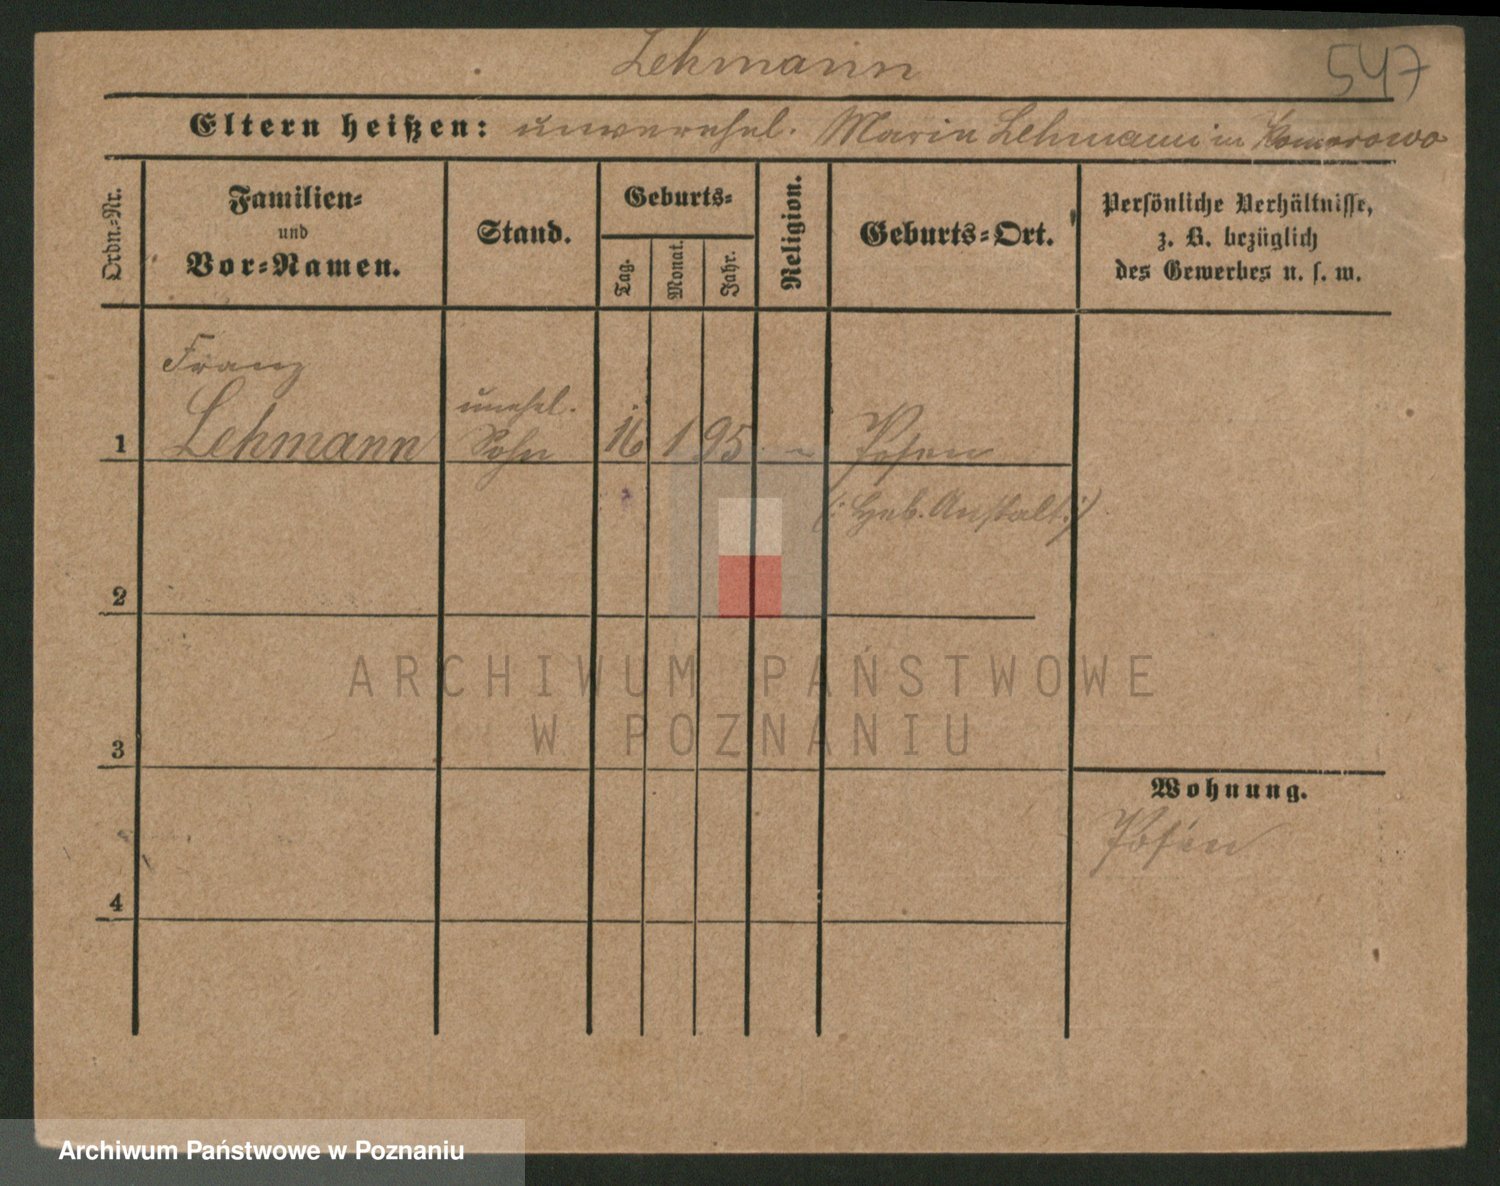 Lehmann
547
Eltern heißen: unverehel. Maria Lehmann in Komorowo
Ordn.-Nr.
Familien-
und
Vor-Namen.
Stand.
Geburts-
Tag.
Monat.
Jahr.
Religion.
Geburts-Ort.
Persönliche Verhältnisse,
z. B. bezüglich
des Gewerbes u. s. w.
Franz
1 Lehmann
unehel.
Sohn
16 1 95 - Posen
(: Geb. Anstalt :)
2
3
4
Wohnung.
Posen
ARCHIWUM PAŃSTWOWE
W POZNANIU
Archiwum Państwowe w Poznaniu